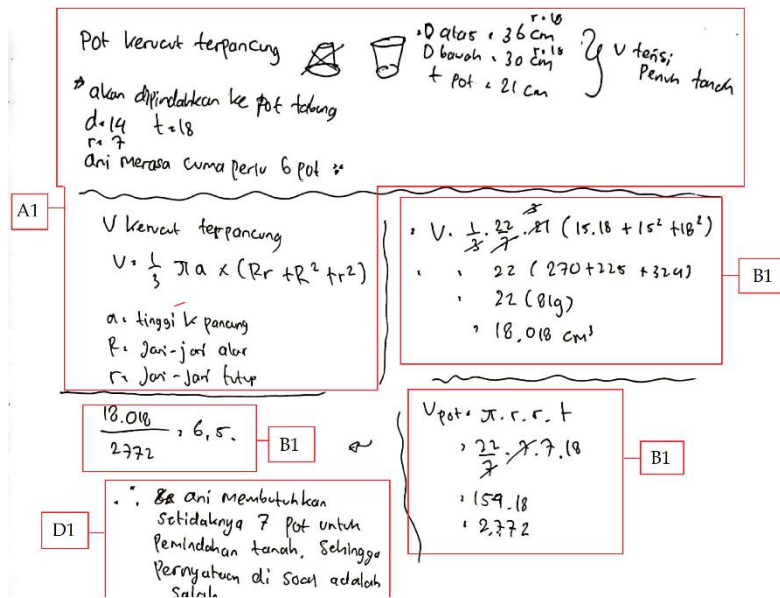 Pot kerucut terpancung
D atas = 36 cm r=18
D bawah = 30 cm r=18
t pot = 21 cm
V terisi
Penuh tanah
* akan dipindahkan ke pot tabung
d=14 t=18
r=7
ani merasa cuma perlu 6 pot
A1
V kerucut terpancung
V = 1/3 π a × (Rr + R² + r²)
a = tinggi k pancung
R = Jari-jari alas
r = Jari-jari tutup
V = 1/3 . 22/7 . 21 3 (15.18 + 15² + 18²)
= 22 (270 + 225 + 324)
= 22 (819)
= 18.018 cm³
B1
18.018 / 2772 = 6,5.
B1
V pot = π . r . r . t
= 22/7 . 7 . 7 . 18
= 154.18
= 2.772
B1
D1
∴ ani membutuhkan
setidaknya 7 pot untuk
pemindahan tanah, sehingga
pernyataan di soal adalah
salah